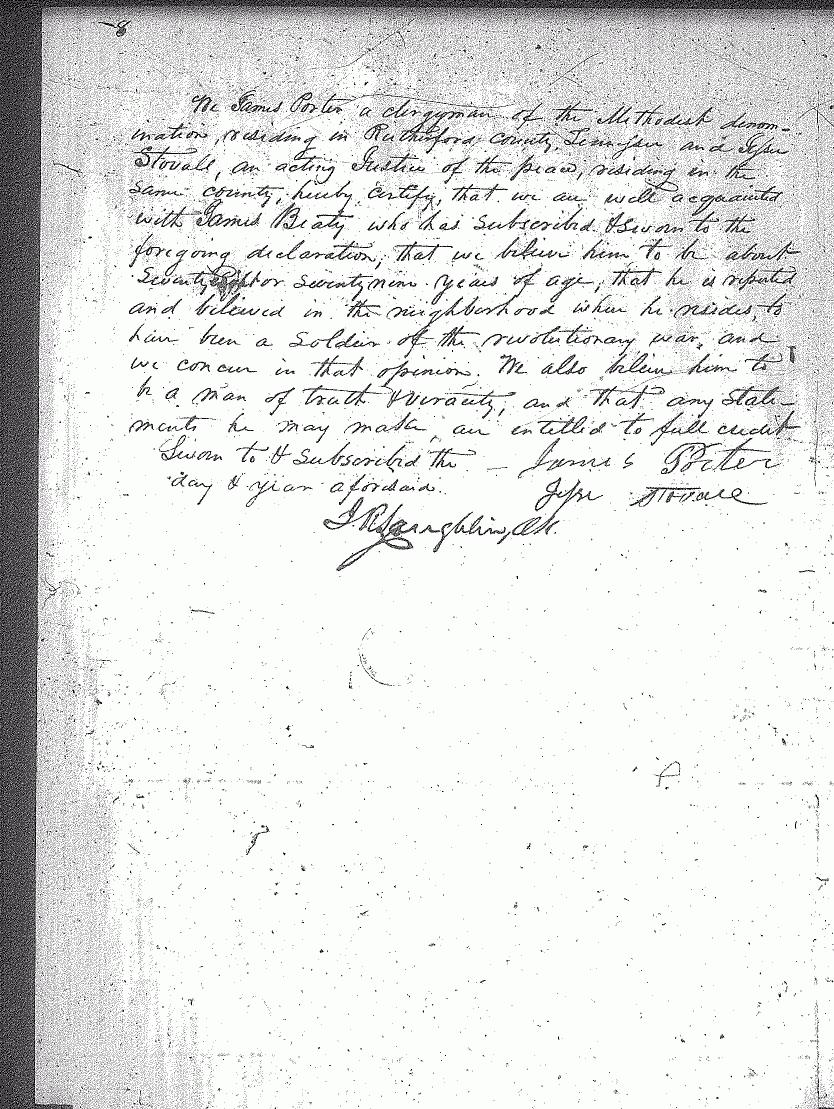 8
We James Porter a clergyman of the Methodist denom-
ination, residing in Rutherford county, Tennessee and Jesse
Stovall, an acting Justice of the peace, residing in the
same county, hereby certify, that we are well acquainted
with James Beaty who has subscribed & sworn to the
foregoing declaration, that we believe him to be about
Seventy or Seventy nine years of age, that he is reputed
and believed in the neighborhood where he resides, to
have been a Soldier of the revolutionary war, and
we concur in that opinion. We also believe him to
be a man of truth & veracity, and that any state-
ments he may make, are intitled to full credit
Sworn to & subscribed the - James Porter
day & year aforesaid. Jesse Stovall
Laughlin, Clk.